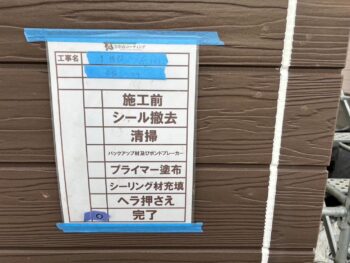 工事名
施工前
シール撤去
清掃
バックアップ材及びボンドブレーカー
プライマー塗布
シーリング材充填
ヘラ押さえ
完了